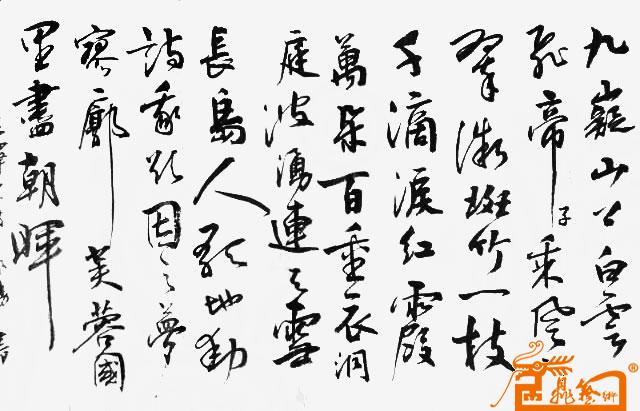 九嶷山上白雲
飛帝子乘風下
翠微斑竹一枝
千滴淚紅霞
萬朵百重衣洞
庭波湧連天雪
長島人歌地動
詩我欲因之夢
寥廓芙蓉國
里盡朝暉